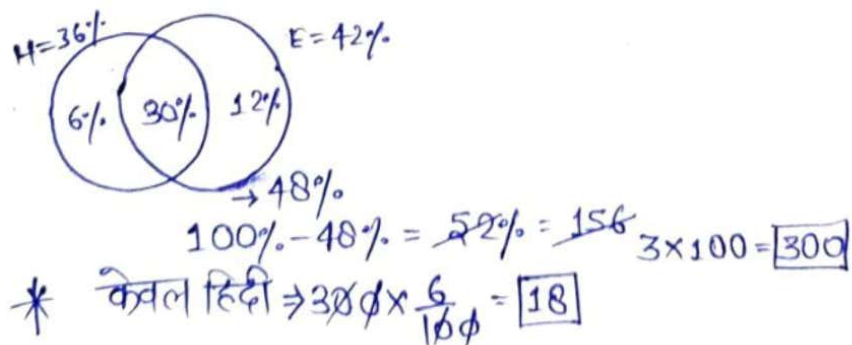 H=36% E=42%
6% 30% 12%
→ 48%
100% - 48% = 52% = 156 3×100 = 300
* केवल हिदी ⇒ 300 × 6/100 = 18